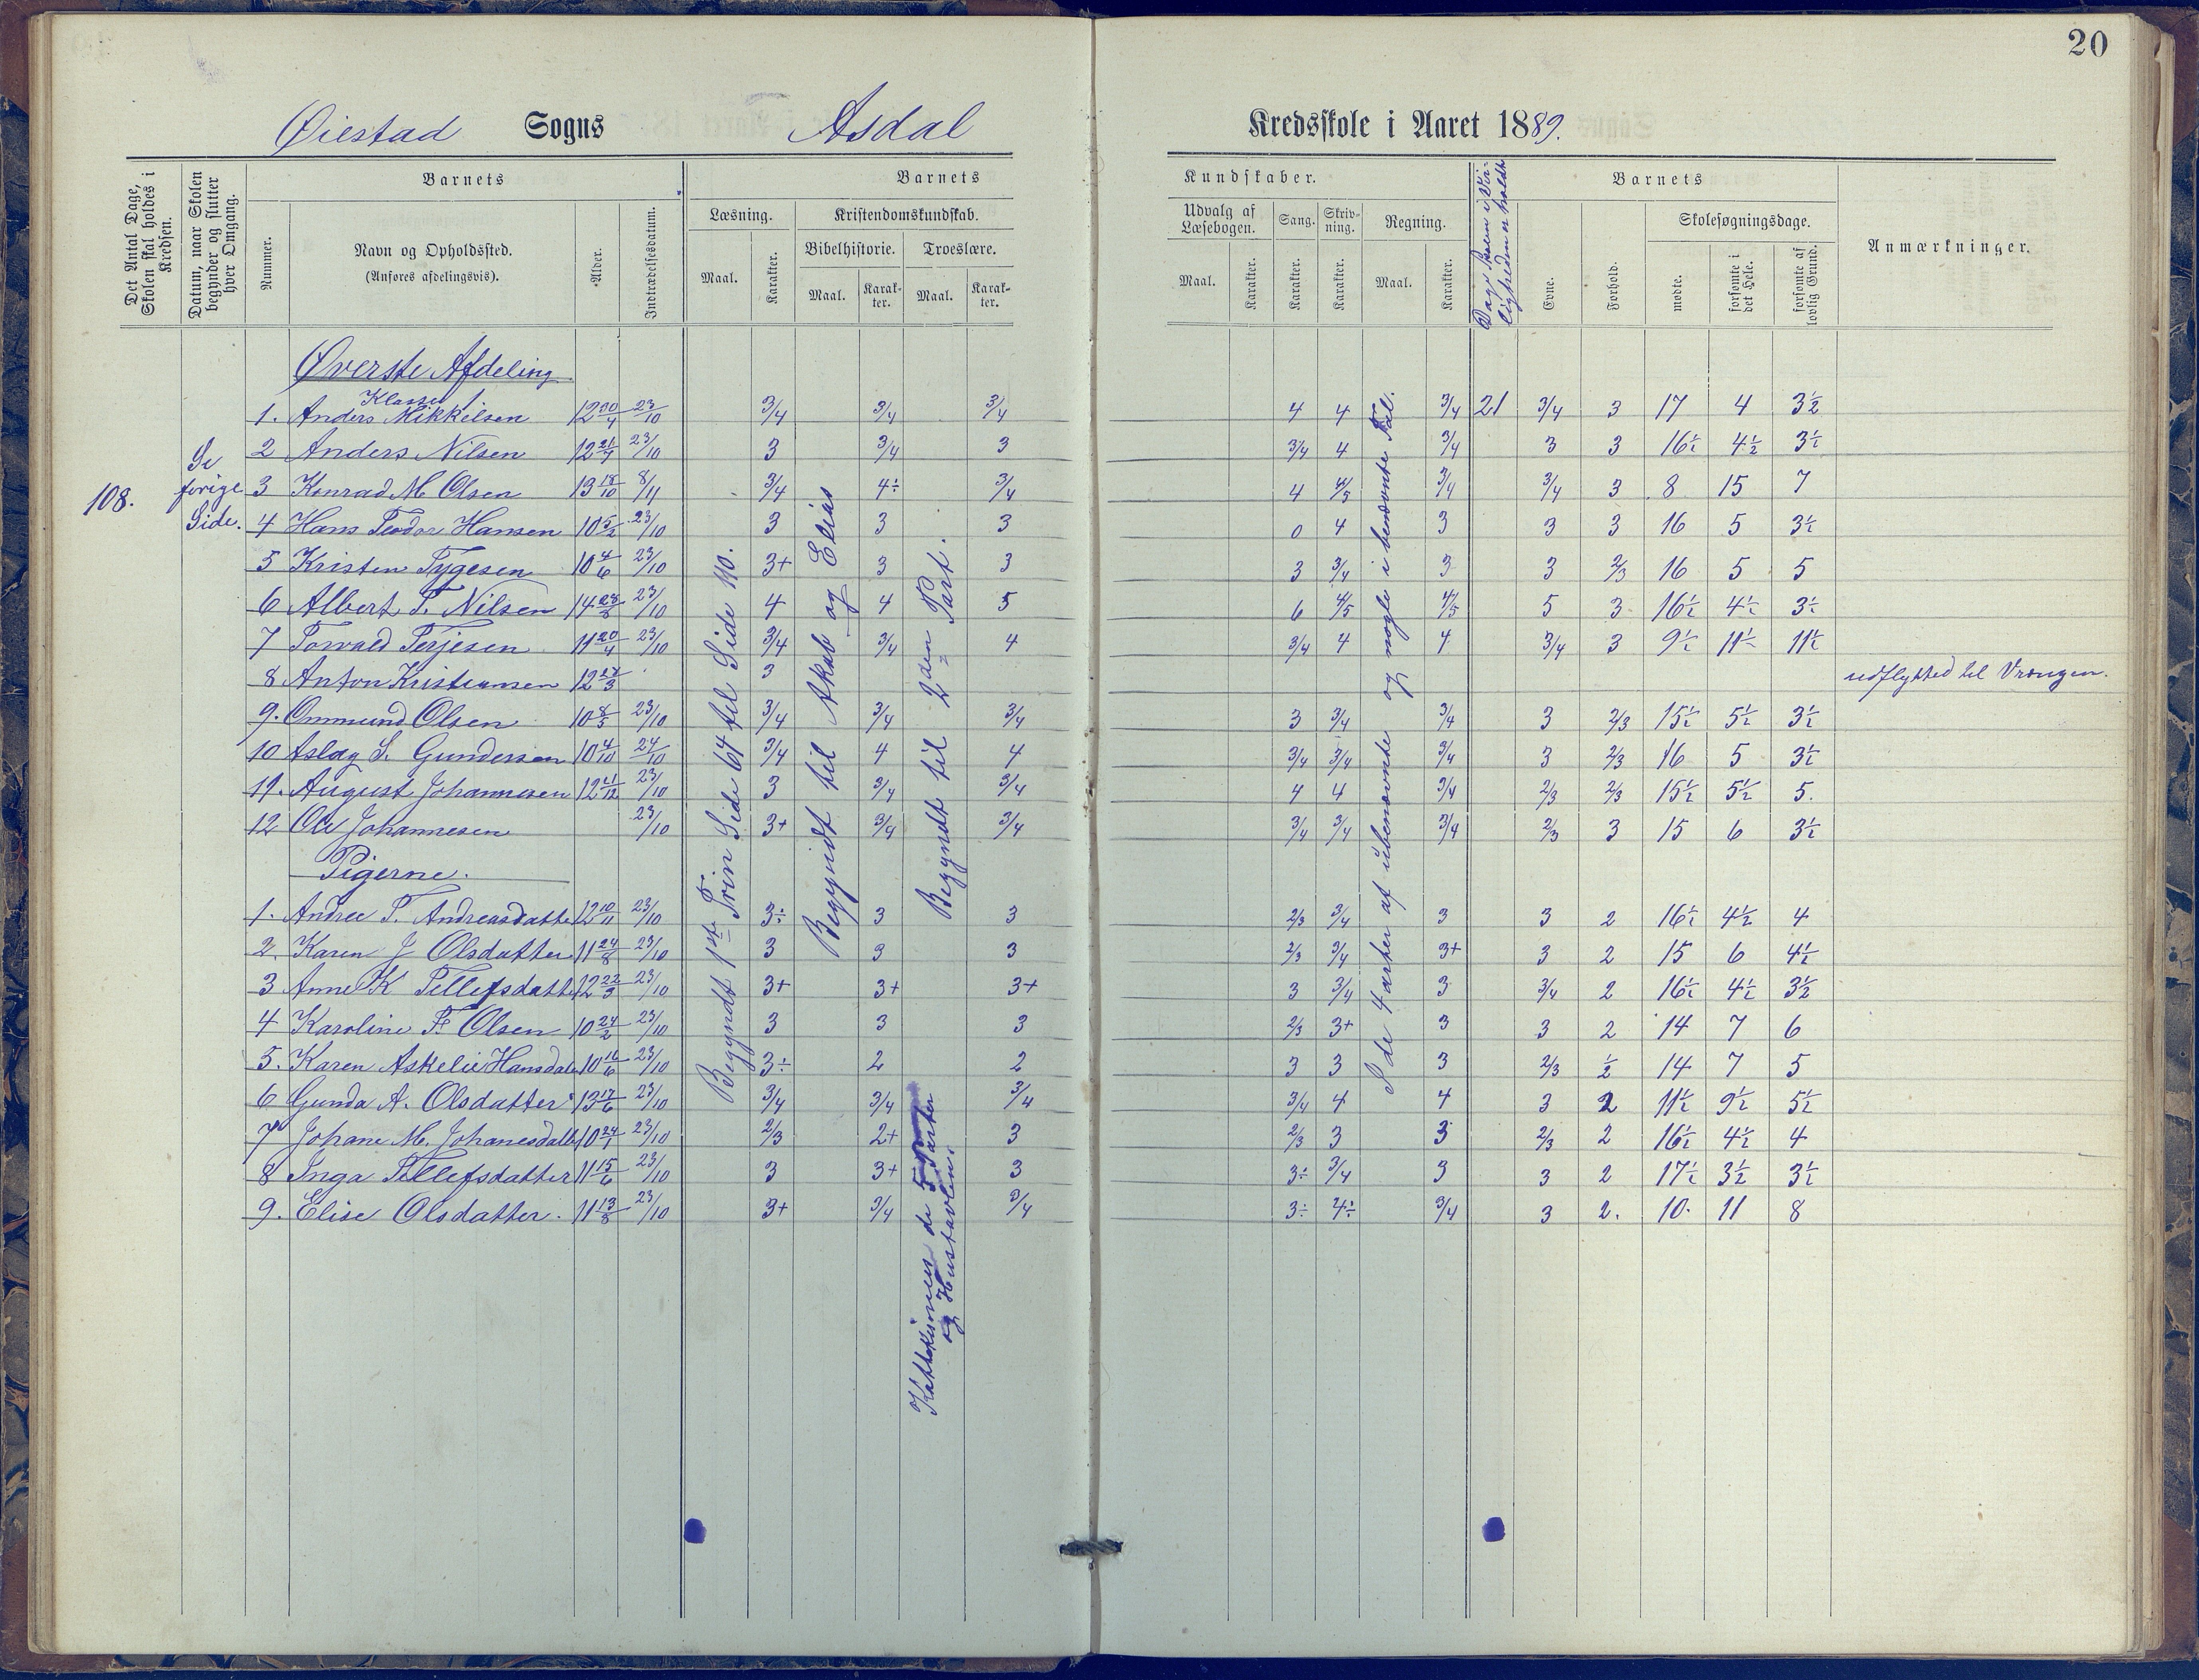 20
Øiestad Sogns Asdal Kredsskole i Aaret 1889.
Det Antal Dage, Skolen skal holdes i Kredsen.
Datum, naar Skolen begynder og slutter hver Omgang.
Barnets
Nummer.
Navn og Opholdssted.
(Anføres afdelingsvis).
Alder.
Indtrædelsesdatum.
Barnets Kundskaber.
Læsning.
Maal. Karakter.
Kristendomskundskab.
Bibelhistorie. Troeslære.
Maal. Karakter. Maal. Karakter.
Udvalg af Læsebogen.
Maal. Karakter.
Sang. Karakter.
Skrivning. Karakter.
Regning.
Maal. Karakter.
Dage Skolen i Virkeligheden er holdt
Barnets
Evne. Forhold.
Skolesøgningsdage.
mødte. forsømte i det Hele. forsømte af lovlig Grund.
Anmærkninger.
108.
Se forige Side.
Øverste Afdeling
Klasse 1
1. Anders Mikkelsen 12 30/4 23/10 3/4 3/4 3/4 4 4 3/4 21 3/4 3 17 4 3½
2 Anders Nilsen 12 21/7 23/10 3 3/4 3 3/4 4 3/4 3 3 16½ 4½ 3½
3 Konrad M Olsen 13 18/10 8/11 3/4 4÷ 3/4 4 4/5 3/4 3/4 3 8 15 7
4 Hans Teodor Hansen 10 5/2 23/10 3 3 3 0 4 3 3 3 16 5 3½
5 Kristen Tygesen 10 4/6 23/10 3+ 3 3 3 3/4 3 3 2/3 16 5 5
6 Albert T. Nilsen 14 28/8 23/10 4 4 5 6 4/5 4/5 5 3 16½ 4½ 3½
7 Torvald Terjesen 11 20/4 23/10 3/4 3/4 4 3/4 4 4 3/4 3 9½ 11½ 11½
8 Anton Kristiansen 12 27/3 3 udflytted til Vrængen.
9. Ommund Olsen 10 8/5 23/10 3/4 3/4 3/4 3 3/4 3/4 3 2/3 15½ 5½ 3½
10 Aslag S. Gundersen 10 4/10 24/10 3/4 4 4 3/4 3/4 3/4 3 2/3 16 5 3½
11. August Johannesen 12 21/12 23/10 3 3/4 3/4 4 4 3/4 2/3 2/3 15½ 5½ 5.
12 Ole Johannesen 23/10 3+ 3/4 3/4 3/4 3/4 3/4 2/3 3 15 6 3½
Pigerne.
1. Andree T. Andreasdatte 12 10/11 23/10 3÷ 3 3 2/3 3/4 3 3 2 16½ 4½ 4
2. Karen J Olsdatter 11 24/8 23/10 3 3 3 2/3 3/4 3+ 3 2 15 6 4½
3 Anne K Tellefsdatt 12 22/3 23/10 3+ 3+ 3+ 3 3/4 3 3/4 2 16½ 4½ 3½
4 Karoline F. Olsen 10 24/2 23/10 3 3 3 2/3 3+ 3 3 2 14 7 6
5. Karen Askelie Hansdat 10 16/6 23/10 3÷ 2 2 3 3 3 2/3 ½ 14 7 5
6 Gunda A. Olsdatter 13 17/6 23/10 3/4 3/4 3/4 3/4 4 4 3 2 11½ 9½ 5½
7 Johane M. Johanesdatt 10 24/1 23/10 2/3 2+ 3 2/3 3 3 2/3 2 16½ 4½ 4
8 Inga Tellefsdatter 11 15/6 23/10 3 3+ 3 3÷ 3/4 3 3 2 17½ 3½ 3½
9. Elise Olsdatter. 11 13/8 23/10 3+ 3/4 3/4 3÷ 4÷ 3/4 3 2. 10. 11 8
Begyndt 1ste Trin Side 64 til Side 110.
Begyndt til Akab og Elias
Begyndt til 2den Part.
Kattekismen de 5 Parter
og Hustavlen.
I de 4 arter af ubenævnte og nogle i benævnte Tal.